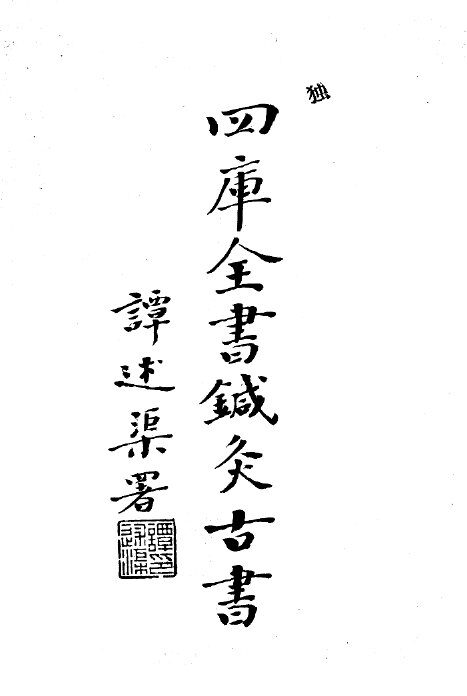 独
四庫全書鍼灸古書
譚述渠署
譚述渠印